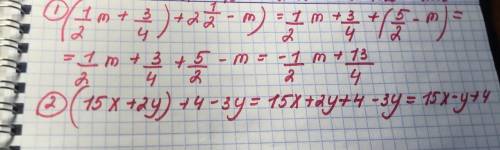 ① (1/2 m + 3/4) + 2 1/2 - m) = 1/2 m + 3/4 + (5/2 - m) =
= 1/2 m + 3/4 + 5/2 - m = -1/2 m + 13/4
② (15x + 2y) + 4 - 3y = 15x + 2y + 4 - 3y = 15x - y + 4